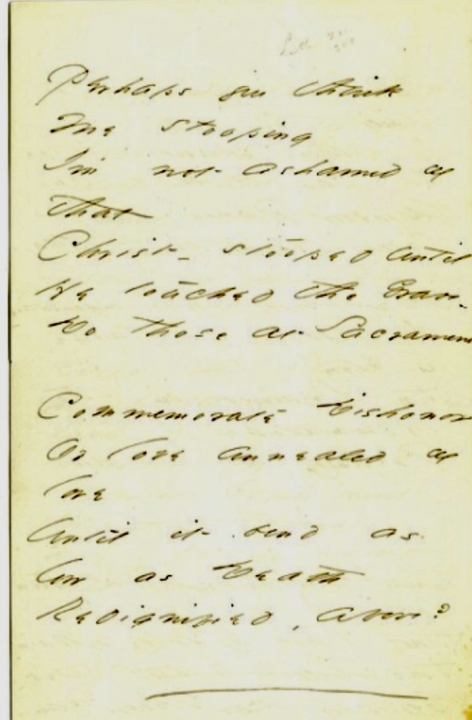 Perhaps you think
me stooping
I'm not ashamed of
that
Christ - stooped until
He touched the Grave -
Do those at Sacrament
Commemorate Dishonor
Or love annealed of
love
Until it bend as
low as Death
Redignified, above?